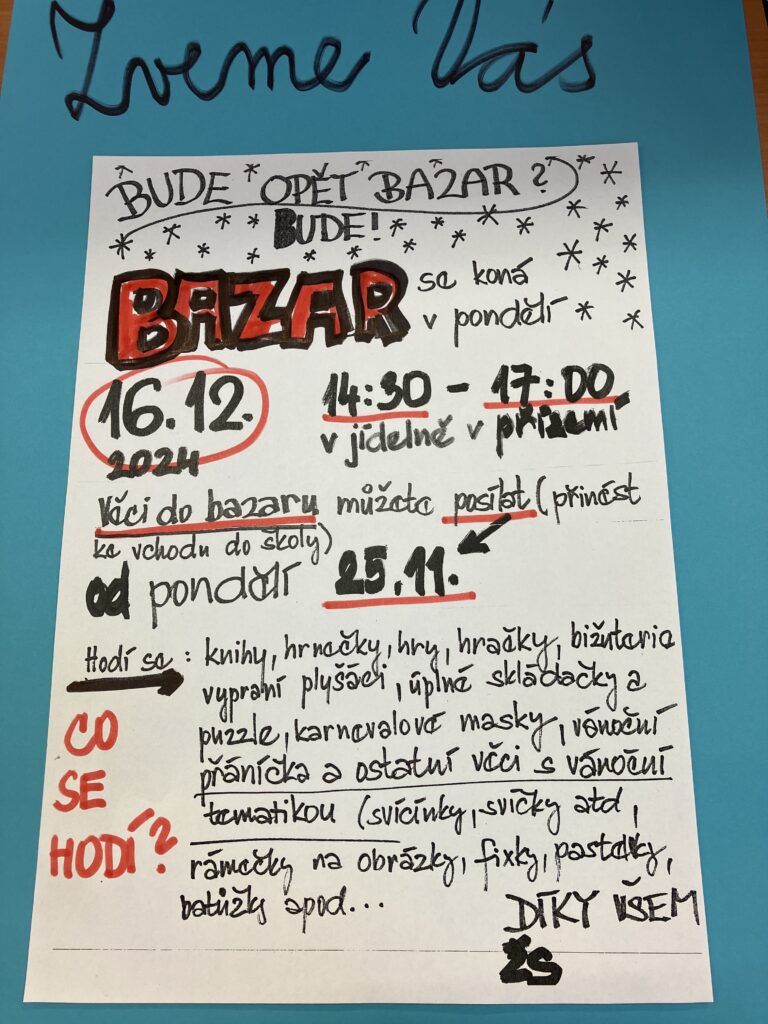 Zveme Vás
BUDE OPĚT BAZAR?
BUDE!
BAZAR se koná
v pondělí
16.12. 14:30 - 17:00
2024 v jídelně v přízemí
Věci do bazaru můžete posílat (přinést
ke vchodu do školy)
od pondělí 25.11.
Hodí se: knihy, hrnečky, hry, hračky, bižuterie
vypraní plyšáci, úplné skládačky a
puzzle, karnevalové masky, vánoční
přáníčka a ostatní věci s vánoční
tematikou (svícínky, svíčky atd,
rámečky na obrázky, fixky, pastelky,
batůžky apod...
CO
SE
HODÍ?
DÍKY VŠEM
ŽS